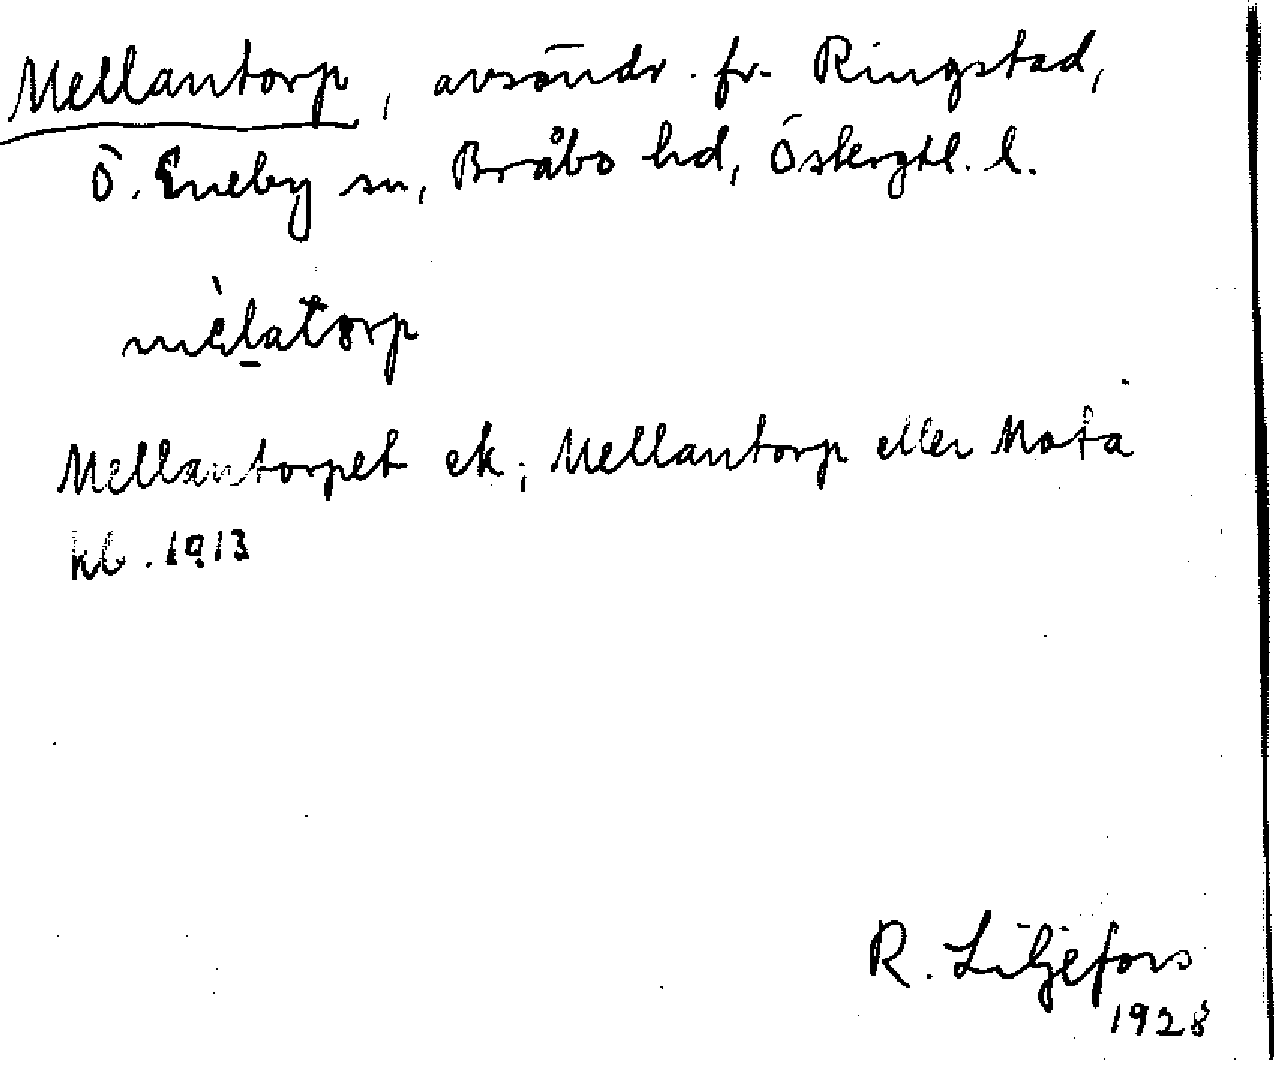 Mellantorp, avsöndr. fr. Ringstad,
Ö. Eneby sn, Bråbo hd, Östergtl. l.
mèlatorp
Mellantorpet ek; Mellantorp eller Mota
kb. 1913
R. Liljefors
1928